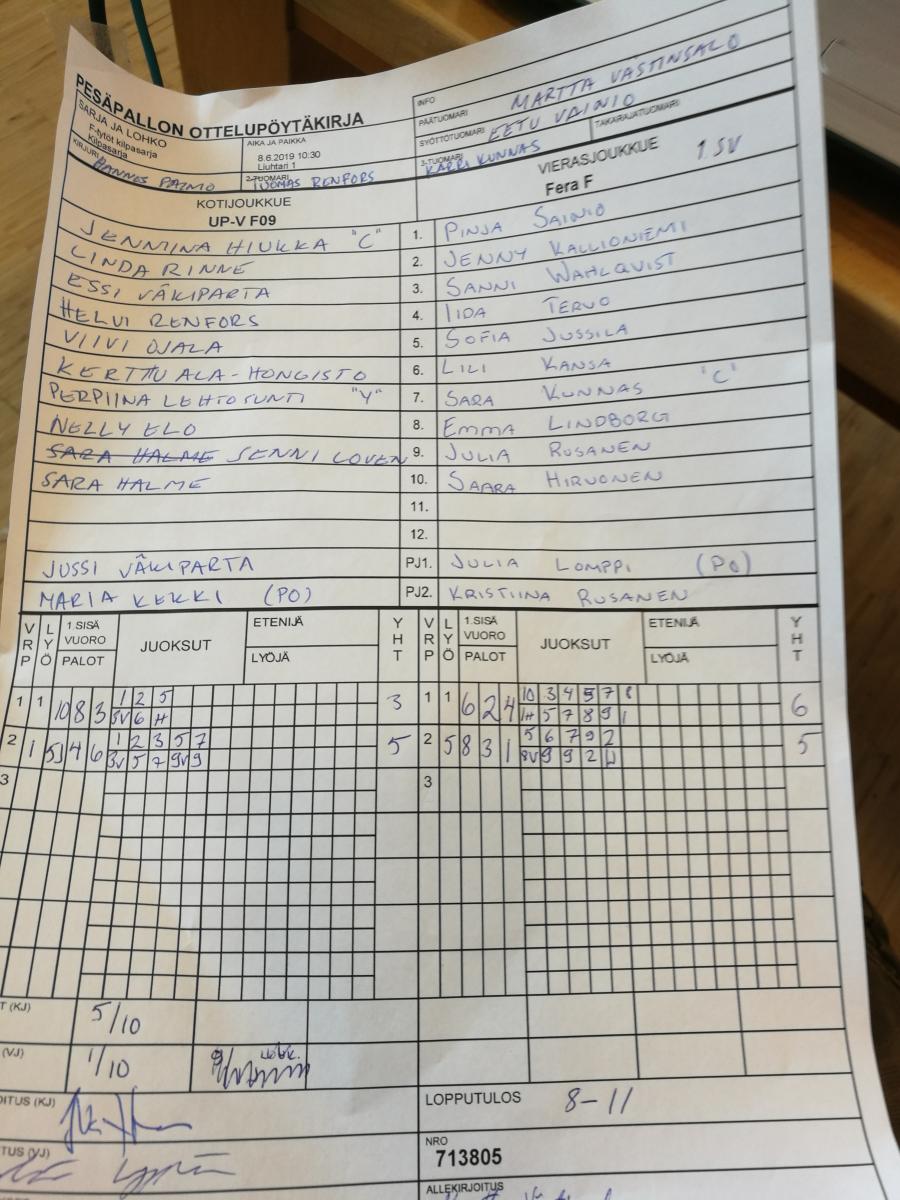 PESÄPALLON OTTELUPÖYTÄKIRJA
SARJA JA LOHKO
F-tytöt kilpasarja
Kilpasarja
AIKA JA PAIKKA
8.6.2019 10:30
Liuhtari 1
INFO
PÄÄTUOMARI MARTTA VASTINSALO
SYÖTTÖTUOMARI EETU VAINIO
TAKARAJATUOMARI
KIRJURI HANNES PALMO
2-TUOMARI TUOMAS RENFORS
3-TUOMARI KARRI KUNNAS
KOTIJOUKKUE
UP-V F09
VIERASJOUKKUE 1 SV
Fera F
JENNINA HIUKKA "C" 1. PINJA SAINIO
LINDA RINNE 2. JENNY KALLIONIEMI
ESSI VÄKIPARTA 3. SANNI WAHLQVIST
HELVI RENFORS 4. IIDA TERVO
VIIVI OJALA 5. SOFIA JUSSILA
KERTTU ALA-HONGISTO 6. LILI KANSA
PERPIINA LEHTOSUNTI "Y" 7. SARA KUNNAS "C"
NELLY ELO 8. EMMA LINDBORG
SARA HALME SENNI LOVEN 9. JULIA RUSANEN
SARA HALME 10. SAARA HIRVONEN
11.
12.
JUSSI VÄKIPARTA PJ1. JULIA LOMPPI (PO)
MARIA KEKKI (PO) PJ2. KRISTIINA RUSANEN
VRP LYÖ 1.SISÄ VUORO PALOT JUOKSUT ETENIJÄ LYÖJÄ YHT VRP LYÖ 1.SISÄ VUORO PALOT JUOKSUT ETENIJÄ LYÖJÄ YHT
1 1 10 8 3 1 2 5 3 1 1 6 2 4 10 3 4 5 7 8 6
3V 6 H 1H 5 7 8 9 1
2 1 5J 4 6 1 2 3 5 7 5 2 5 8 3 1 5 6 7 9 2 5
3V 5 7 9V 9 8V 9 9 2
3 3
T (KJ) 5/10
(VJ) 1/10
OITUS (KJ)
LOPPUTULOS 8-11
TUS (VJ)
NRO
713805
ALLEKIRJOITUS